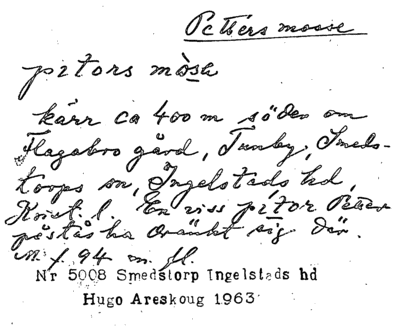 Pettérs mosse
pitors mòsa
kärr ca 400 m söder om
Flagabro gård, Tunby, Smeds-
torps sn, Ingelstads hd,
Krist. l. En viss pitor Petter
påstås ha dränkt sig där.
M. f. 94 m. fl.
Nr 5008 Smedstorp Ingelstads hd
Hugo Areskoug 1963